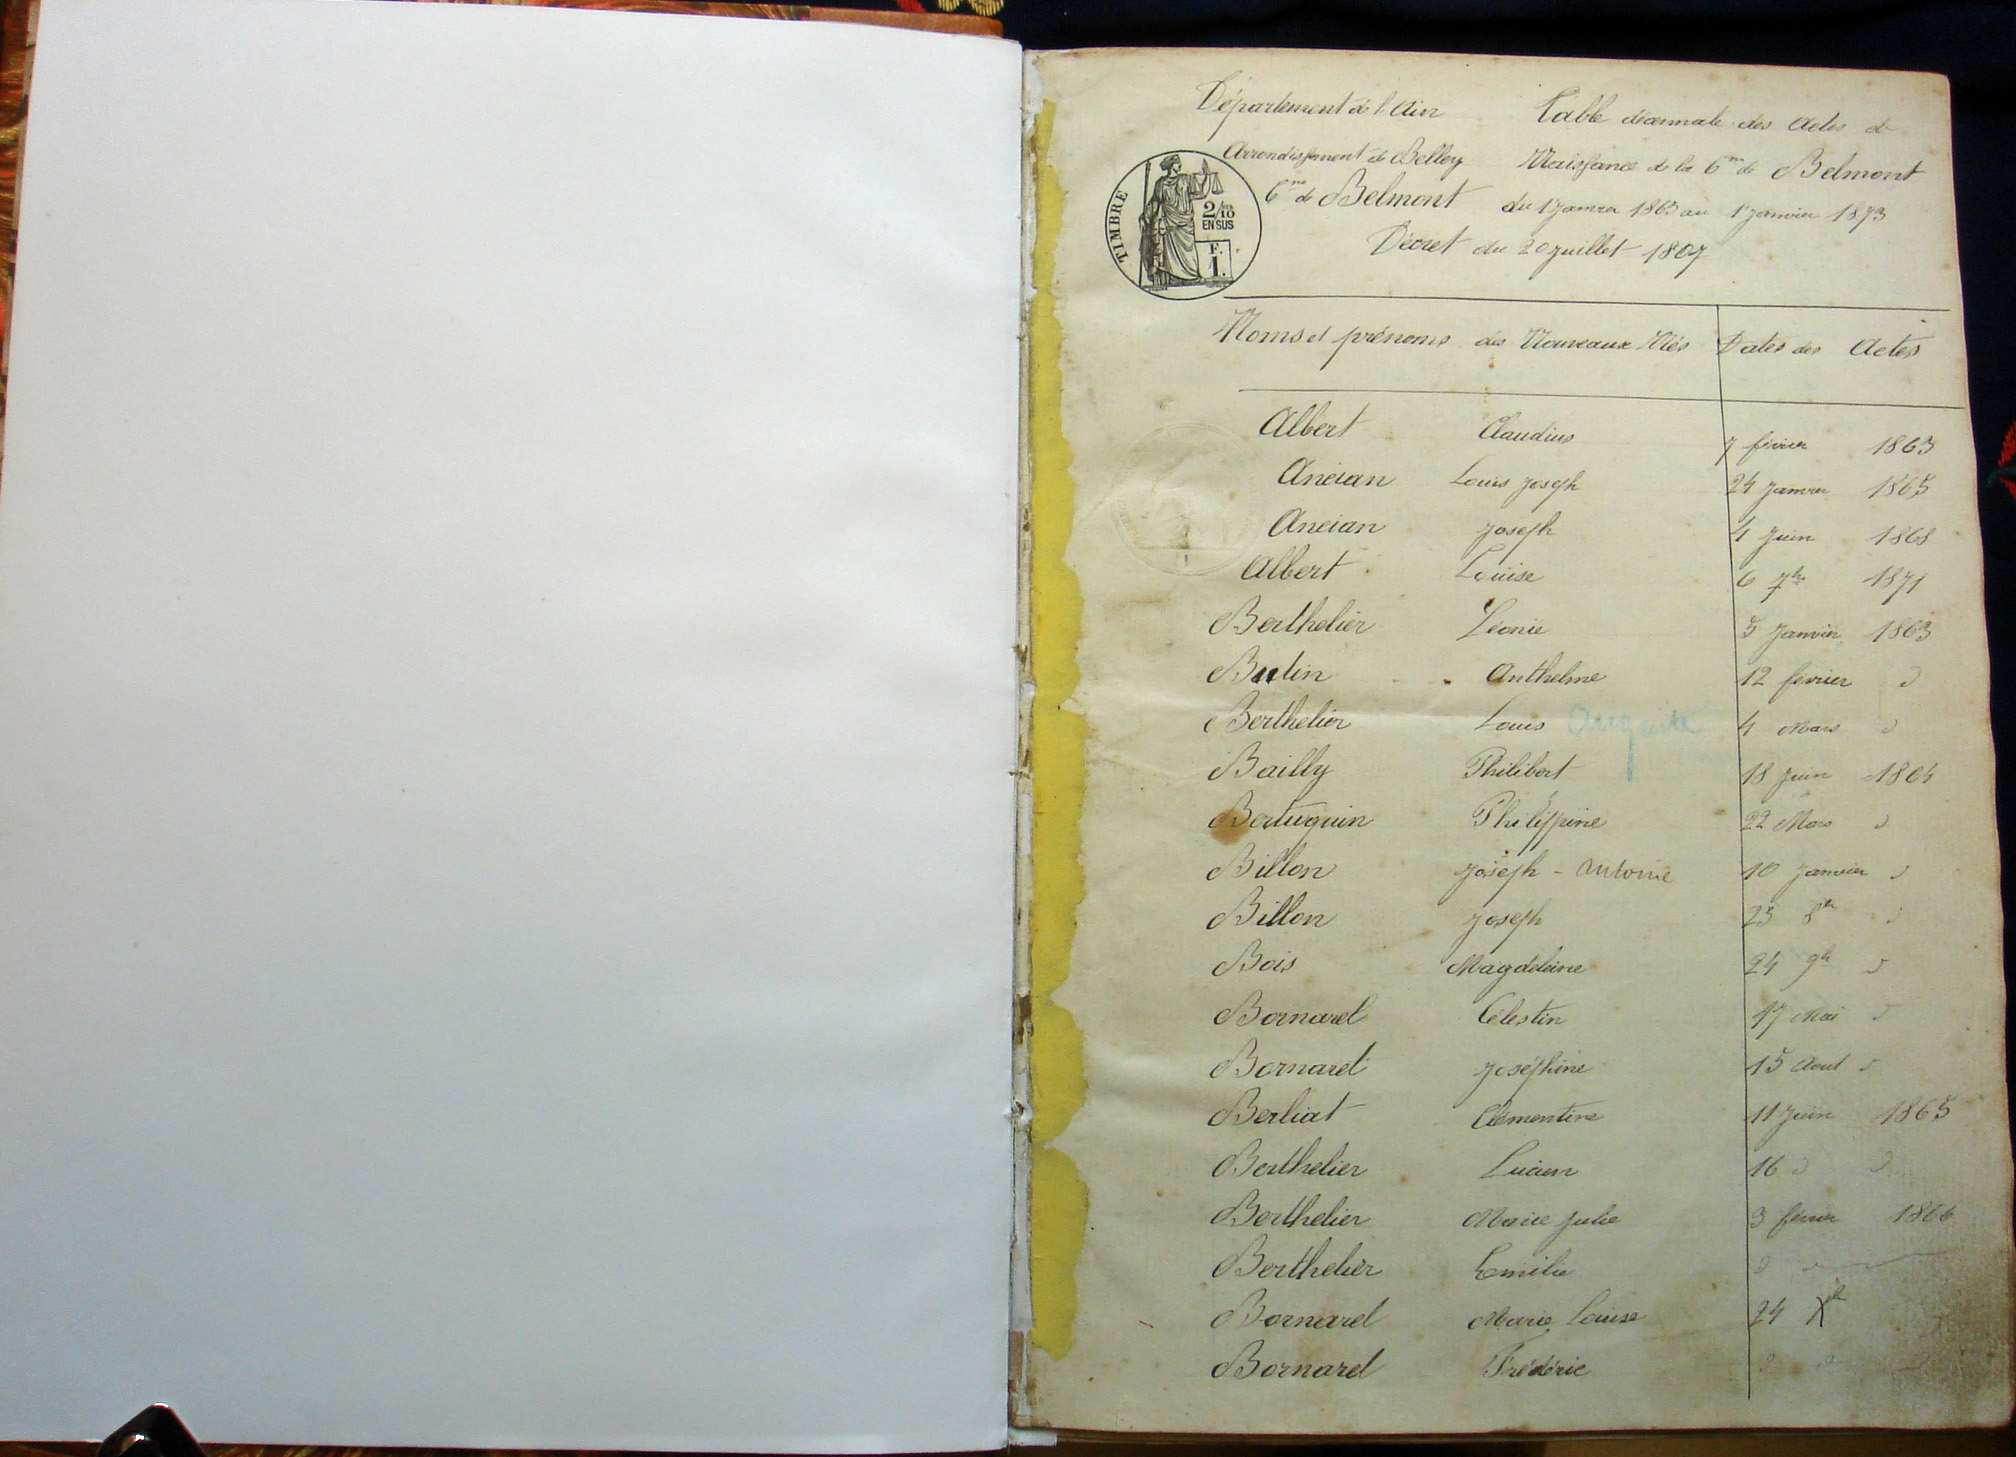 Département de l'Ain Table décennale des Actes de
Arrondissement de Belley Naissance de la Cne de Belmont
Cne de Belmont du 1 Janvier 1863 au 1 Janvier 1873
Décret du 20 Juillet 1807
TIMBRE
2/10
EN SUS
F.
1.
Noms et prénoms des Nouveaux Nés Dates des Actes
Albert Claudius 7 février 1863
Ancian Louis Joseph 24 Janvier 1865
Ancian Joseph 4 Juin 1868
Albert Louise 6 7bre 1871
Berthelier Léonie 5 Janvier 1863
Anthelme 12 février d
Berthelier Louis Auguste 4 Mars d
Bailly Philibert 18 Juin 1864
Bertuquin Philippine 22 Mars d
Billon Joseph - Antoine 10 Janvier d
Billon Joseph 23 8bre d
Bois Magdeleine 24 9bre d
Bornarel Célestin 17 Mai d
Bornarel Joséphine 15 Aout d
Berliat Clémentine 11 Juin 1865
Berthelier Lucien 16 d d
Berthelier Marie Julie 3 février 1866
Berthelier Emilie d d
Bornarel Marie Louise 24 Xbre
Bornarel Frédéric d d d